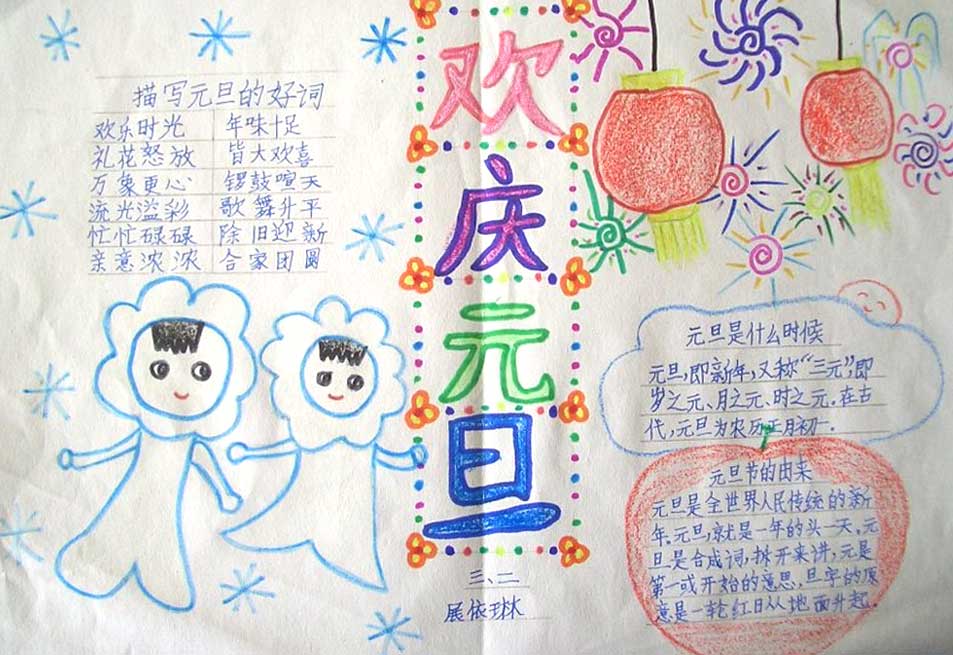 描写元旦的好词
欢乐时光 年味十足
礼花怒放 皆大欢喜
万象更心 锣鼓喧天
流光溢彩 歌舞升平
忙忙碌碌 除旧迎新
亲意浓浓 合家团圆
欢
庆
元
旦
三、二
展依琳
元旦是什么时候
元旦,即新年,又称“三元”,即
岁之元、月之元、时之元。在古
代,元旦为农历正月初一。
元旦节的由来
元旦是全世界人民传统的新
年,元旦,就是一年的头一天。元
旦是合成词,拆开来讲,元是
第一或开始的意思,旦字的原
意是一轮红日从地面升起。